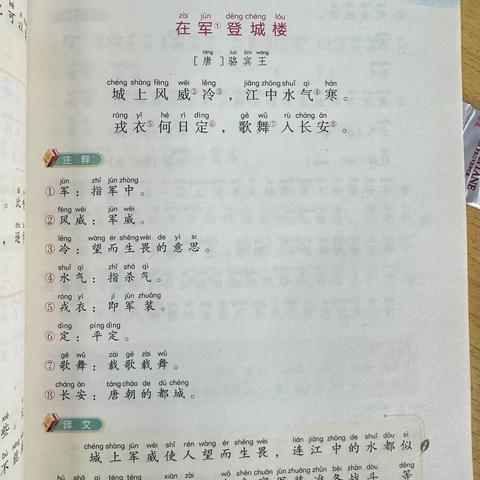 zài jūn dēng chéng lóu
在军①登城楼
táng luò bīn wáng
[唐]骆宾王
chéng shàng fēng wēi lěng jiāng zhōng shuǐ qì hán
城上风威②冷③,江中水气④寒。
róng yī hé rì dìng gē wǔ rù cháng ān
戎衣⑤何日定⑥,歌舞⑦入长安⑧。
注释
jūn zhǐ jūn zhòng
①军:指军中。
fēng wēi jūn wēi
②风威:军威。
lěng wàng ér shēng wèi de yì si
③冷:望而生畏的意思。
shuǐ qì zhǐ shā qì
④水气:指杀气。
róng yī jí jūn zhuāng
⑤戎衣:即军装。
dìng píng dìng
⑥定:平定。
gē wǔ zài gē zài wǔ
⑦歌舞:载歌载舞。
cháng ān táng cháo de dū chéng
⑧长安:唐朝的都城。
译文
chéng shàng jūn wēi shǐ rén wàng ér shēng wèi lián jiāng zhōng de shuǐ dōu sì
城上军威使人望而生畏,连江中的水都似